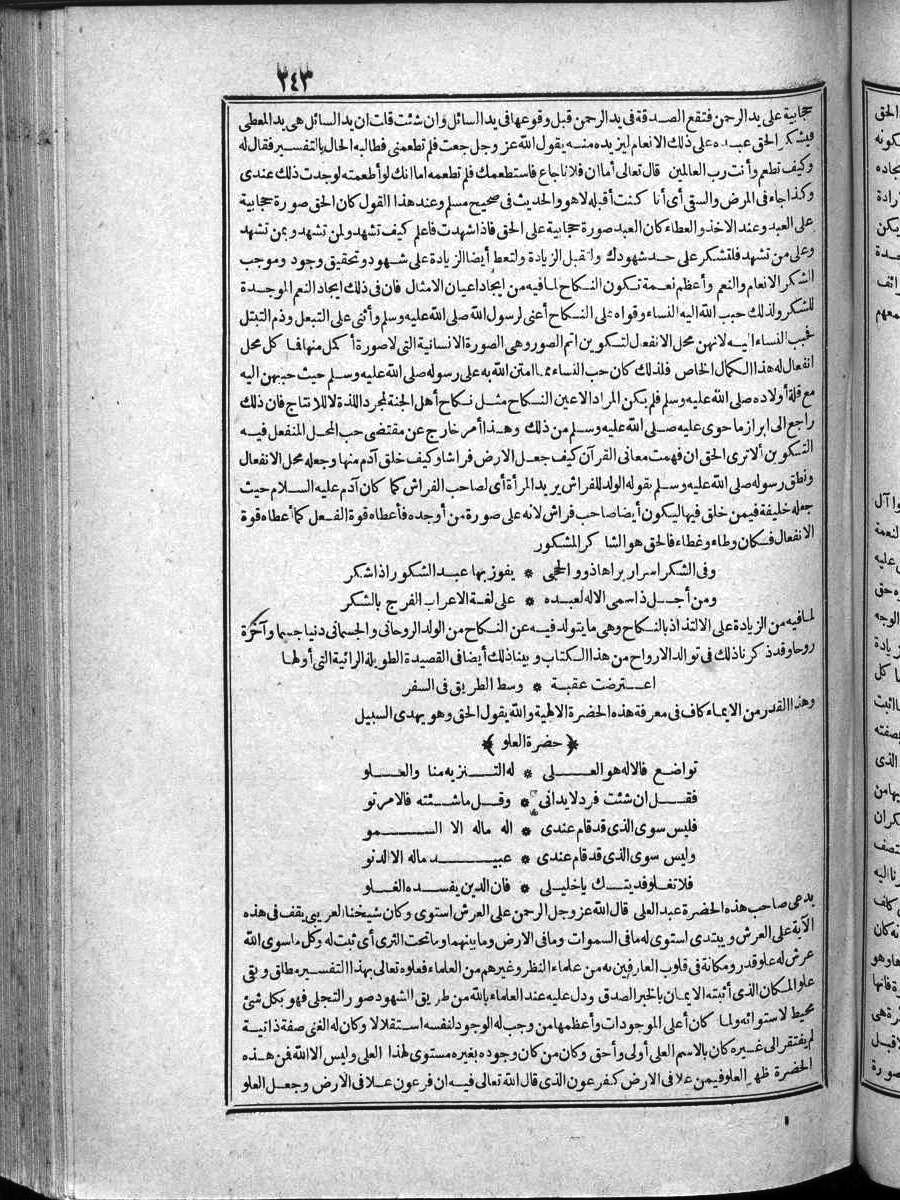 ٢٤٣
حجابية على يد الرحمن فتقع الصدقة فى يد الرحمن قبل وقوعها فى يد السائل وان شئت قلت ان يد السائل هى يد المعطى
فيشكر الحق عبده على ذلك الانعام ليزيده منه يقول الله عز وجل جعت فلم تطعمنى فطالبه الحال بالتفسير فقال له
وكيف تطعم وأنت رب العالمين قال تعالى أما ان فلانا جاع فاستطعمك فلم تطعمه اما انك لو أطعمته لوجدت ذلك عندى
وكذا جاء فى المرض والسقى أى أنا كنت أقبله لا هو والحديث فى صحيح مسلم وعند هذا القول كان الحق صورة حجابية
على العبد وعند الاخذ والعطاء كان العبد صورة حجابية على الحق فاذا شهدت فاعلم كيف تشهد ولمن تشهد وبمن تشهد
وعلى من تشهد فلتشكر على حد شهودك ولتقبل الزيادة ولتعط أيضا الزيادة على شهود وتحقيق وجود وموجب
الشكر الانعام والنعم وأعظم نعمة تكون النكاح لما فيه من ايجاد اعيان الامثال فان فى ذلك ايجاد النعم الموجدة
للشكر ولذلك حبب الله اليه النساء وقواه على النكاح أعنى لرسول الله صلى الله عليه وسلم وأثنى على التبعل وذم التبتل
فحبب النساء اليه لانهن محل الانفعال لتكوين اتم الصور وهى الصورة الانسانية التى لا صورة أكمل منها فما كل محل
انفعال له هذا الكمال الخاص فلذلك كان حب النساء مما امتن الله به على رسوله صلى الله عليه وسلم حيث حببهن اليه
مع قلة أولاده صلى الله عليه وسلم فلم يكن المراد الا عين النكاح مثل نكاح أهل الجنة لمجرد اللذة لا للانتاج فان ذلك
راجع الى ابراز ما حوى عليه صلى الله عليه وسلم من ذلك وهذا أمر خارج عن مقتضى حب المحل المنفعل فيه
التكوين ألا ترى الحق ان فهمت معانى القرآن كيف جعل الارض فراشا وكيف خلق آدم منها وجعله محل الانفعال
ونطق رسوله صلى الله عليه وسلم بقوله الولد للفراش يريد المرأة أى لصاحب الفراش كما كان آدم عليه السلام حيث
جعله خليفة فيمن خلق فيها ليكون أيضا صاحب فراش لانه على صورة من أوجده فأعطاه قوة الفعل كما أعطاه قوة
الانفعال فكان وطاء وغطاء فالحق هو الشاكر المشكور
وفى الشكر اسرار يراها ذوو الحجى * يفوز بها عبد الشكور اذا شكر
ومن أجل ذا سمى الاله لعبده * على لغة الاعراب الفرج بالشكر
لما فيه من الزيادة على الالتذاذ بالنكاح وهى ما يتولد فيه عن النكاح من الولد الروحانى والجسمانى دنيا جسما وآخرة
روحا وقد ذكرنا ذلك فى توالد الارواح من هذا الكتاب وبينا ذلك أيضا فى القصيدة الطويلة الرائية التى أولها
اعترضت عقبة * وسط الطريق فى السفر
وهذا القدر من الايماء كاف فى معرفة هذه الحضرة الالهية والله يقول الحق وهو يهدى السبيل
﴿حضرة العلو﴾
تواضع فالاله هو العلى * له التنزيه منا والعلو
فقل ان شئت فرد لا يدانى * وقل ما شئته فالامر تو
فليس سوى الذى قد قام عندى * اله ماله الا السمو
وليس سوى الذى قد قام عندى * عبيد ماله الا الدنو
فلا تغلو فديتك يا خليلى * فان الدين يفسده الغلو
يدعى صاحب هذه الحضرة عبد العلى قال الله عز وجل الرحمن على العرش استوى وكان شيخنا العريبى يقف فى هذه
الآية على العرش ويبتدى استوى له ما فى السموات وما فى الارض وما بينهما وما تحت الثرى أى ثبت له وكل ما سوى الله
عرش له علو قدر ومكانة فى قلوب العارفين به من علماء النظر وغيرهم من العلماء فعلوه تعالى بهذا التفسير مطلق وبقى
علو المكان الذى أثبته الايمان بالخبر الصدق ودل عليه عند العلماء بالله من طريق الشهود صور التجلى فهو بكل شئ
محيط لاستوائه ولما كان أعلى الموجودات وأعظمها من وجب له الوجود لنفسه استقلالا وكان له الغنى صفة ذاتية
لم يفتقر الى غيره كان بالاسم العلى أولى وأحق وكان من كان وجوده بغيره مستوى لهذا العلى وليس الا الله فمن هذه
الحضرة ظهر العلو فيمن علا فى الارض كفرعون الذى قال الله تعالى فيه ان فرعون علا فى الارض وجعل العلو